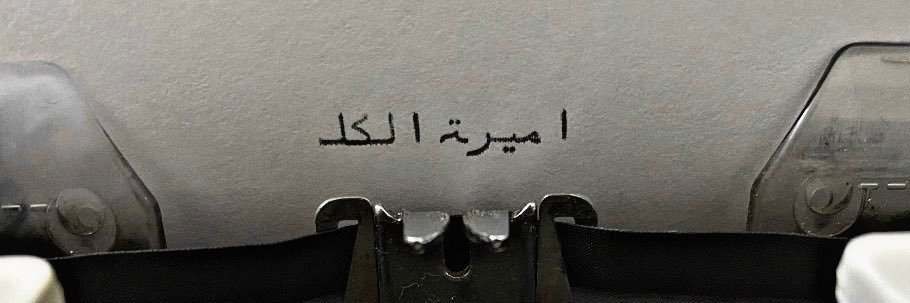 اميرة الكلـ